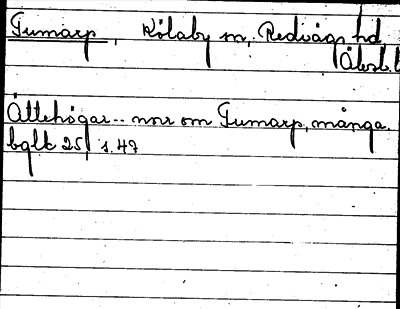 Gumarp, Kölaby sn, Redvägs hd
Älvsb. l
Ättehögar -- norr om Gumarp, många.
bglk 25, s. 47